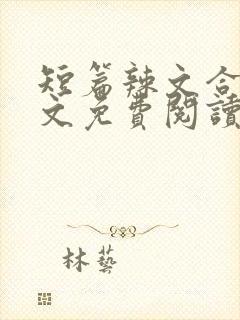 短篇辣文合
文免費閱讀
林藝